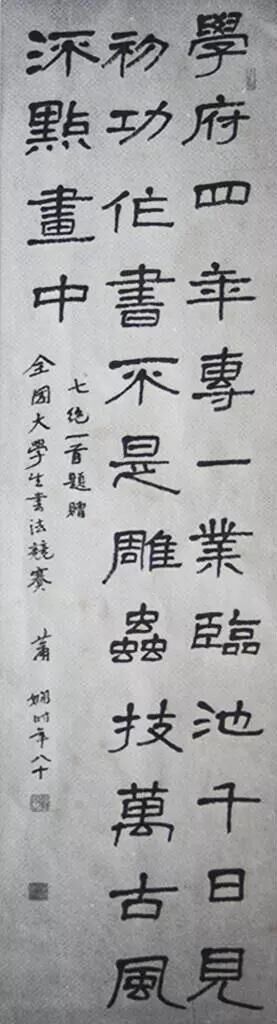 學府四年專一業臨池千日見
初功作書不是雕蟲技萬古風
流點畫中
七絶一首題贈
全國大學生書法競賽 蕭嫻時年八十